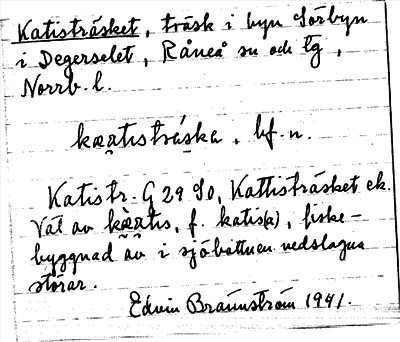 Katisträsket, träsk i byn Sörbyn
i Degerselet, Råneå sn och tg,
Norrb. l.
kæ̣ạtisträska, bf. n.
Katistr. G 29 SO, Kattisträsket ek.
Väl av kæ̀ạtis, f. katis(a), fiske-
byggnad av i sjöbottnen nedslagna
störar.
Edvin Brännström 1941.